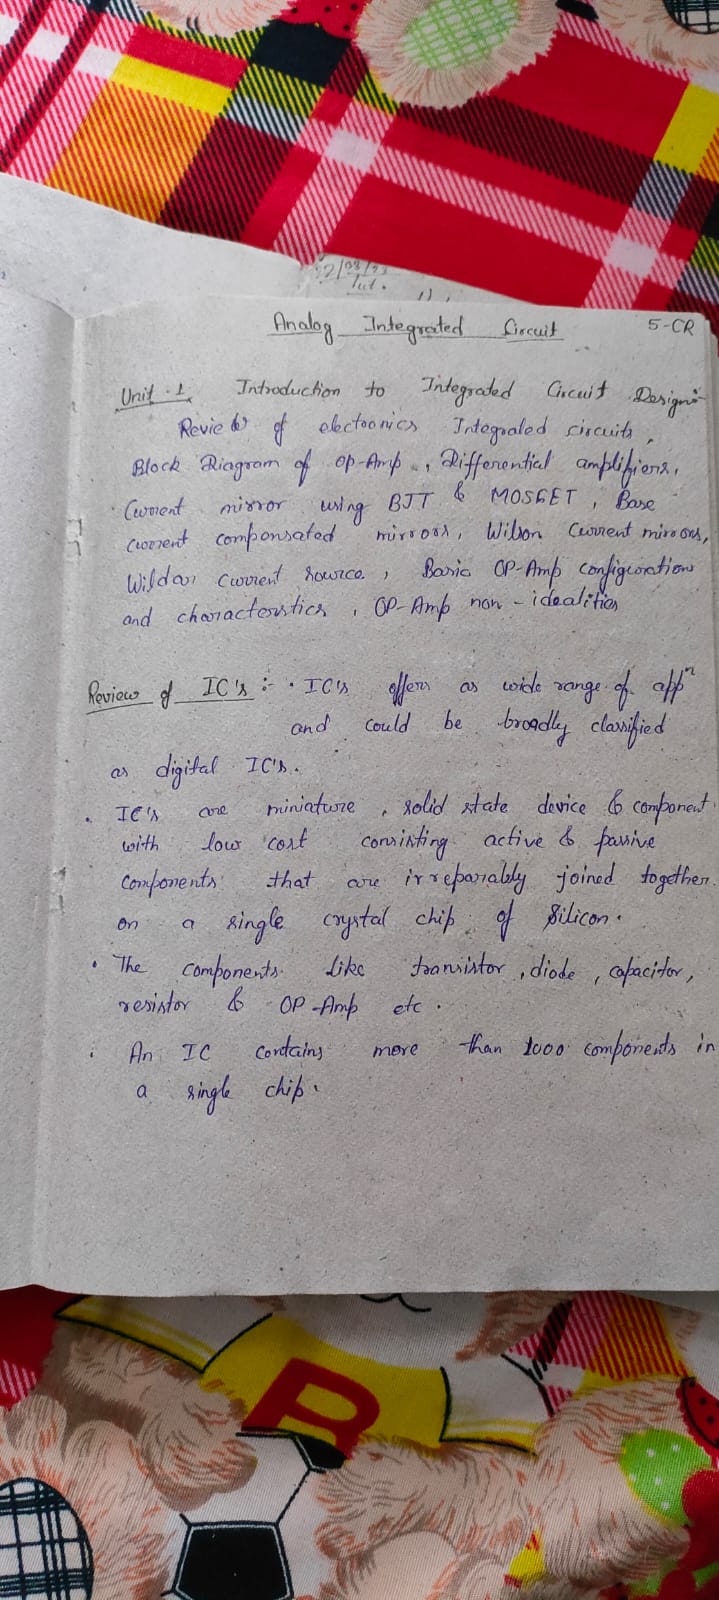 22/08/23
Tut.
Analog Integrated Circuit 5-CR
Unit-1 Introduction to Integrated Circuit Design:-
Review of electronics Integrated circuits,
Block Diagram of OP-Amp, Differential amplifiers,
Current mirror using BJT & MOSFET, Base
current compensated mirrors, Wilson Current mirrors,
Wildar Current Source, Basic OP-Amp configurations
and characterstics, OP-Amp non-idealities
Review of IC's :- • IC's offers as wide range of appⁿ
and could be broadly classified
as digital IC's.
• IC's are miniature, solid state device & component
with low cost consisting active & passive
components that are irreparably joined together
on a single crystal chip of Silicon.
• The components like transistor, diode, capacitor,
resistor & OP-Amp etc.
• An IC contains more than 1000 components in
a single chip.
B